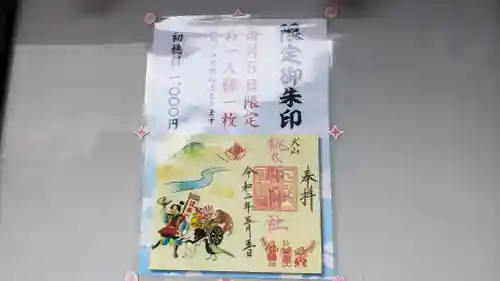 限定御朱印
毎月5日限定
お一人様一枚
初穂料 1,000円
奉拝
犬山
桃太郎神社
令和二年五月五日